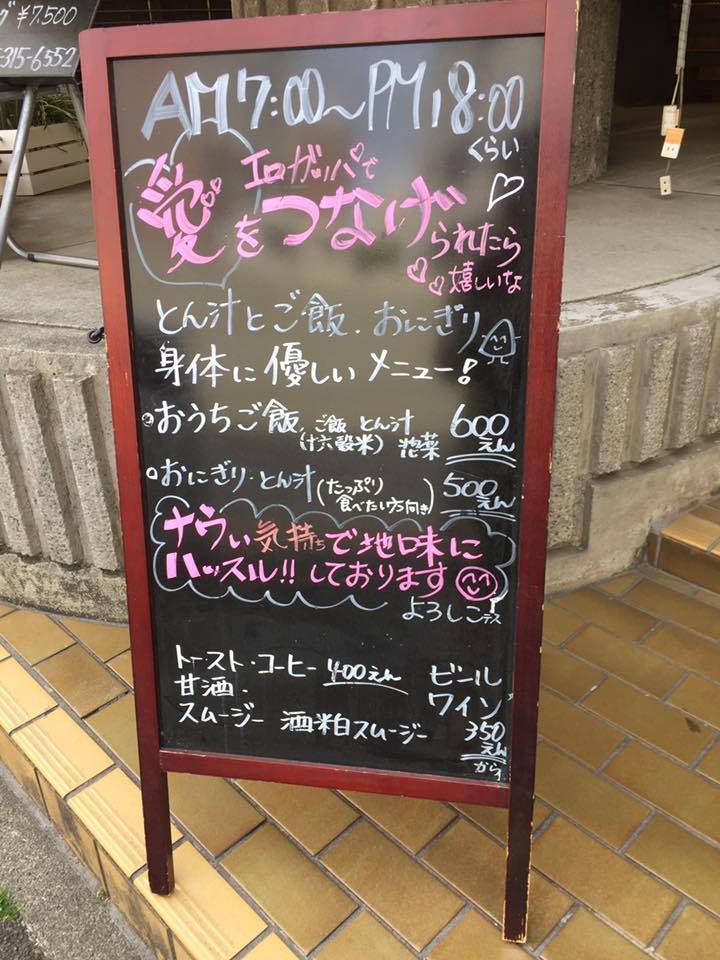 グ ¥7.500
315-6552
AM7:00〜PM18:00
くらい
エロガッパで
愛をつなげられたら
嬉しいな
とん汁とご飯.おにぎり
身体に優しいメニュー!
おうちご飯 ご飯 とん汁 600えん
(十六穀米) 惣菜
おにぎり・とん汁(たっぷり食べたい方向き) 500えん
ナウい気持ちで地味に
ハッスル!!しております
よろしこデス
トースト・コーヒー 400えん ビール
甘酒. ワイン
スムージー 酒粕スムージー 350えん
から